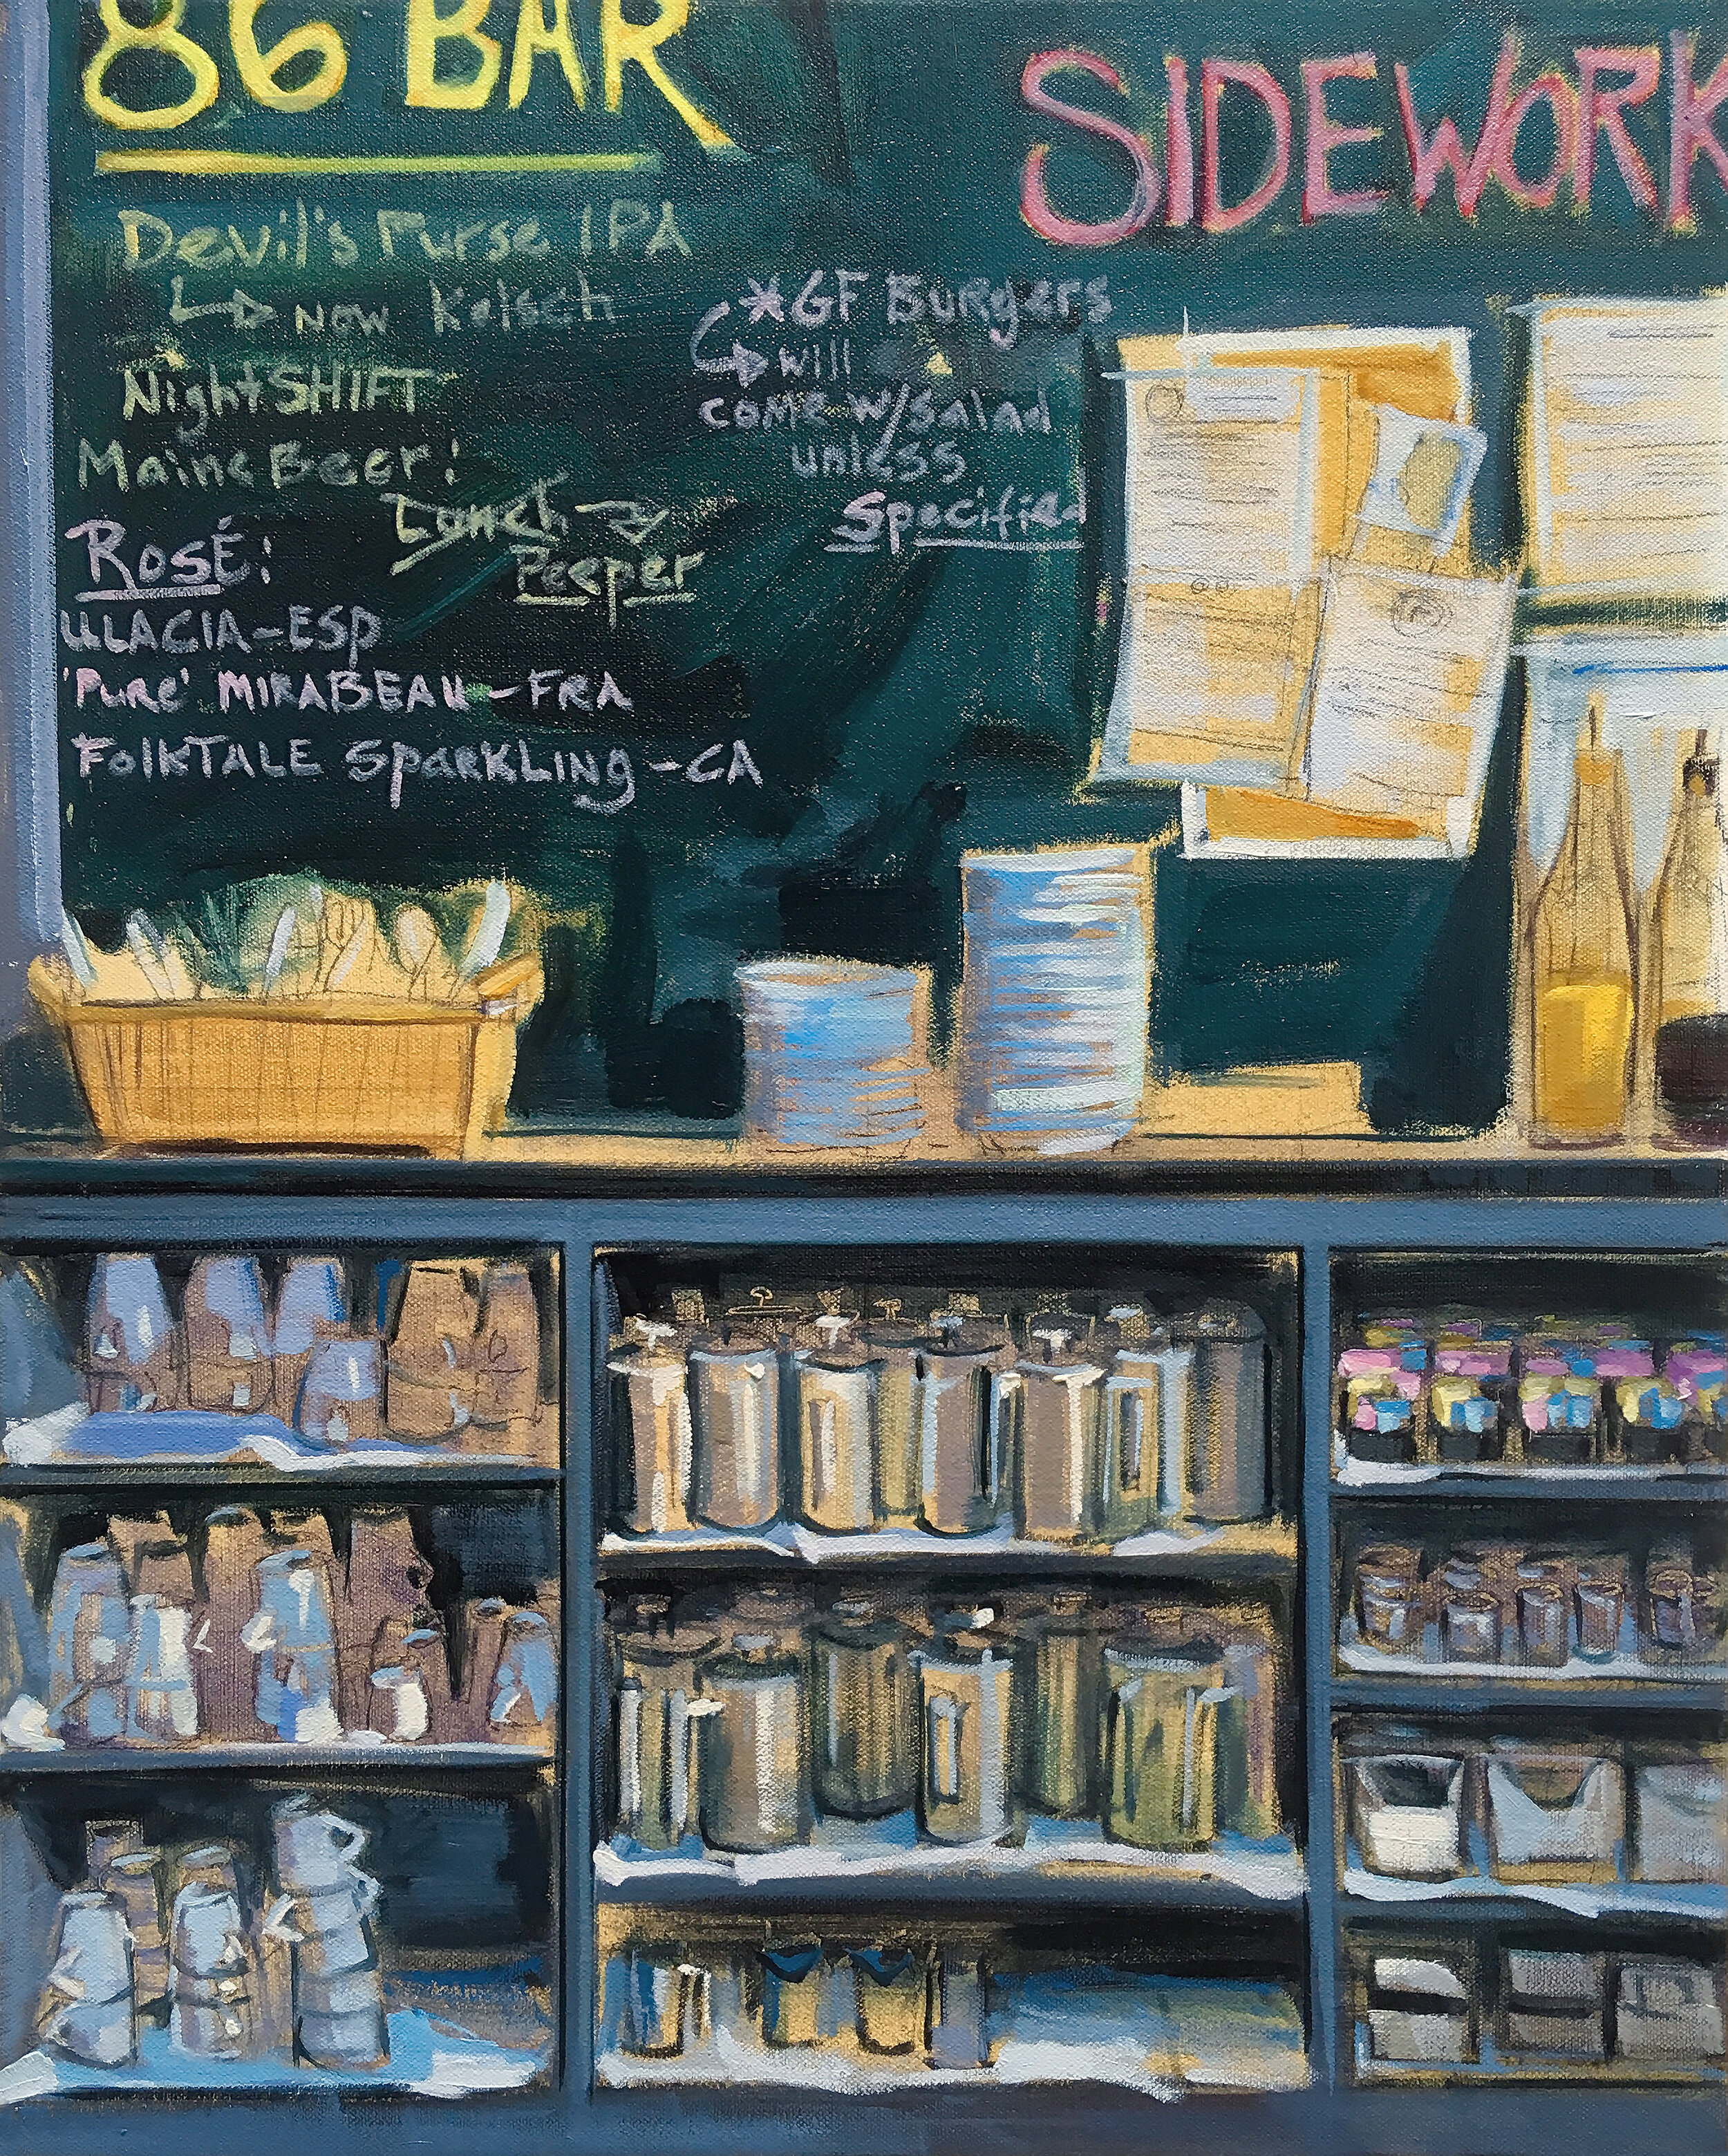 86 BAR
Devil's Purse IPA
↳ now Kolsch
NightSHIFT
Maine Beer:
Lunch →
Peeper
ROSÉ:
ULACIA-ESP
'Pure' MIRABEAU-FRA
FolkTALE SparkLing-CA
SIDEWORK
*GF Burgers
↳ will
come w/salad
unless
Specified